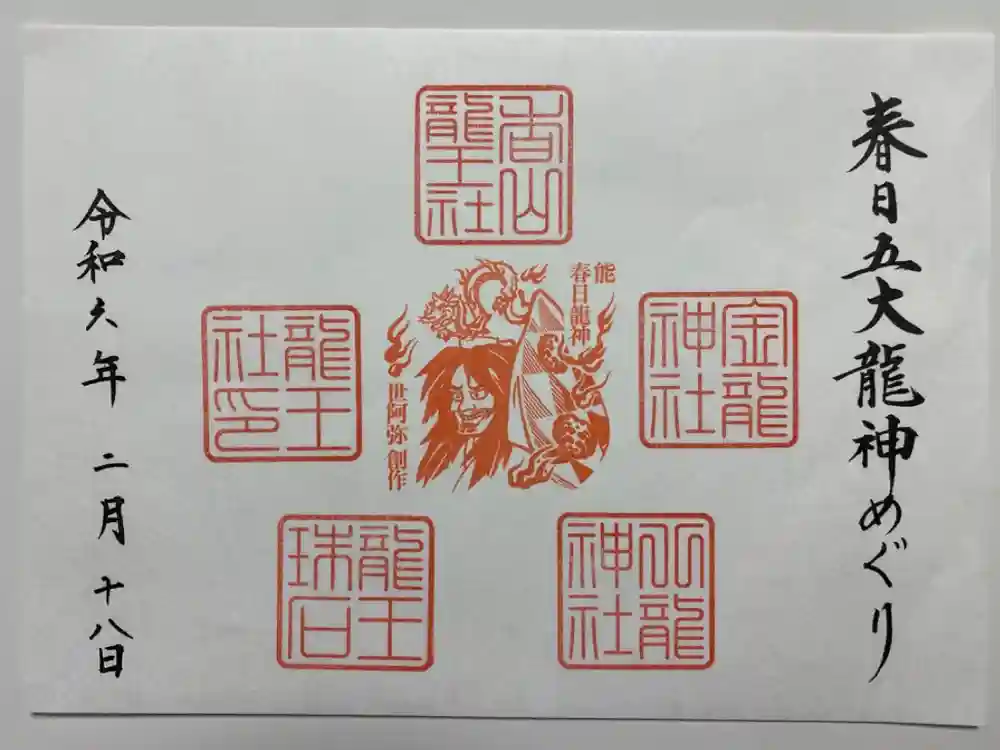 春日五大龍神めぐり
金龍
神社
能
春日龍神
香山
龍王社
世阿弥 創作
仙龍
神社
龍王
珠石
龍王
社印
令和六年 二月 十八日